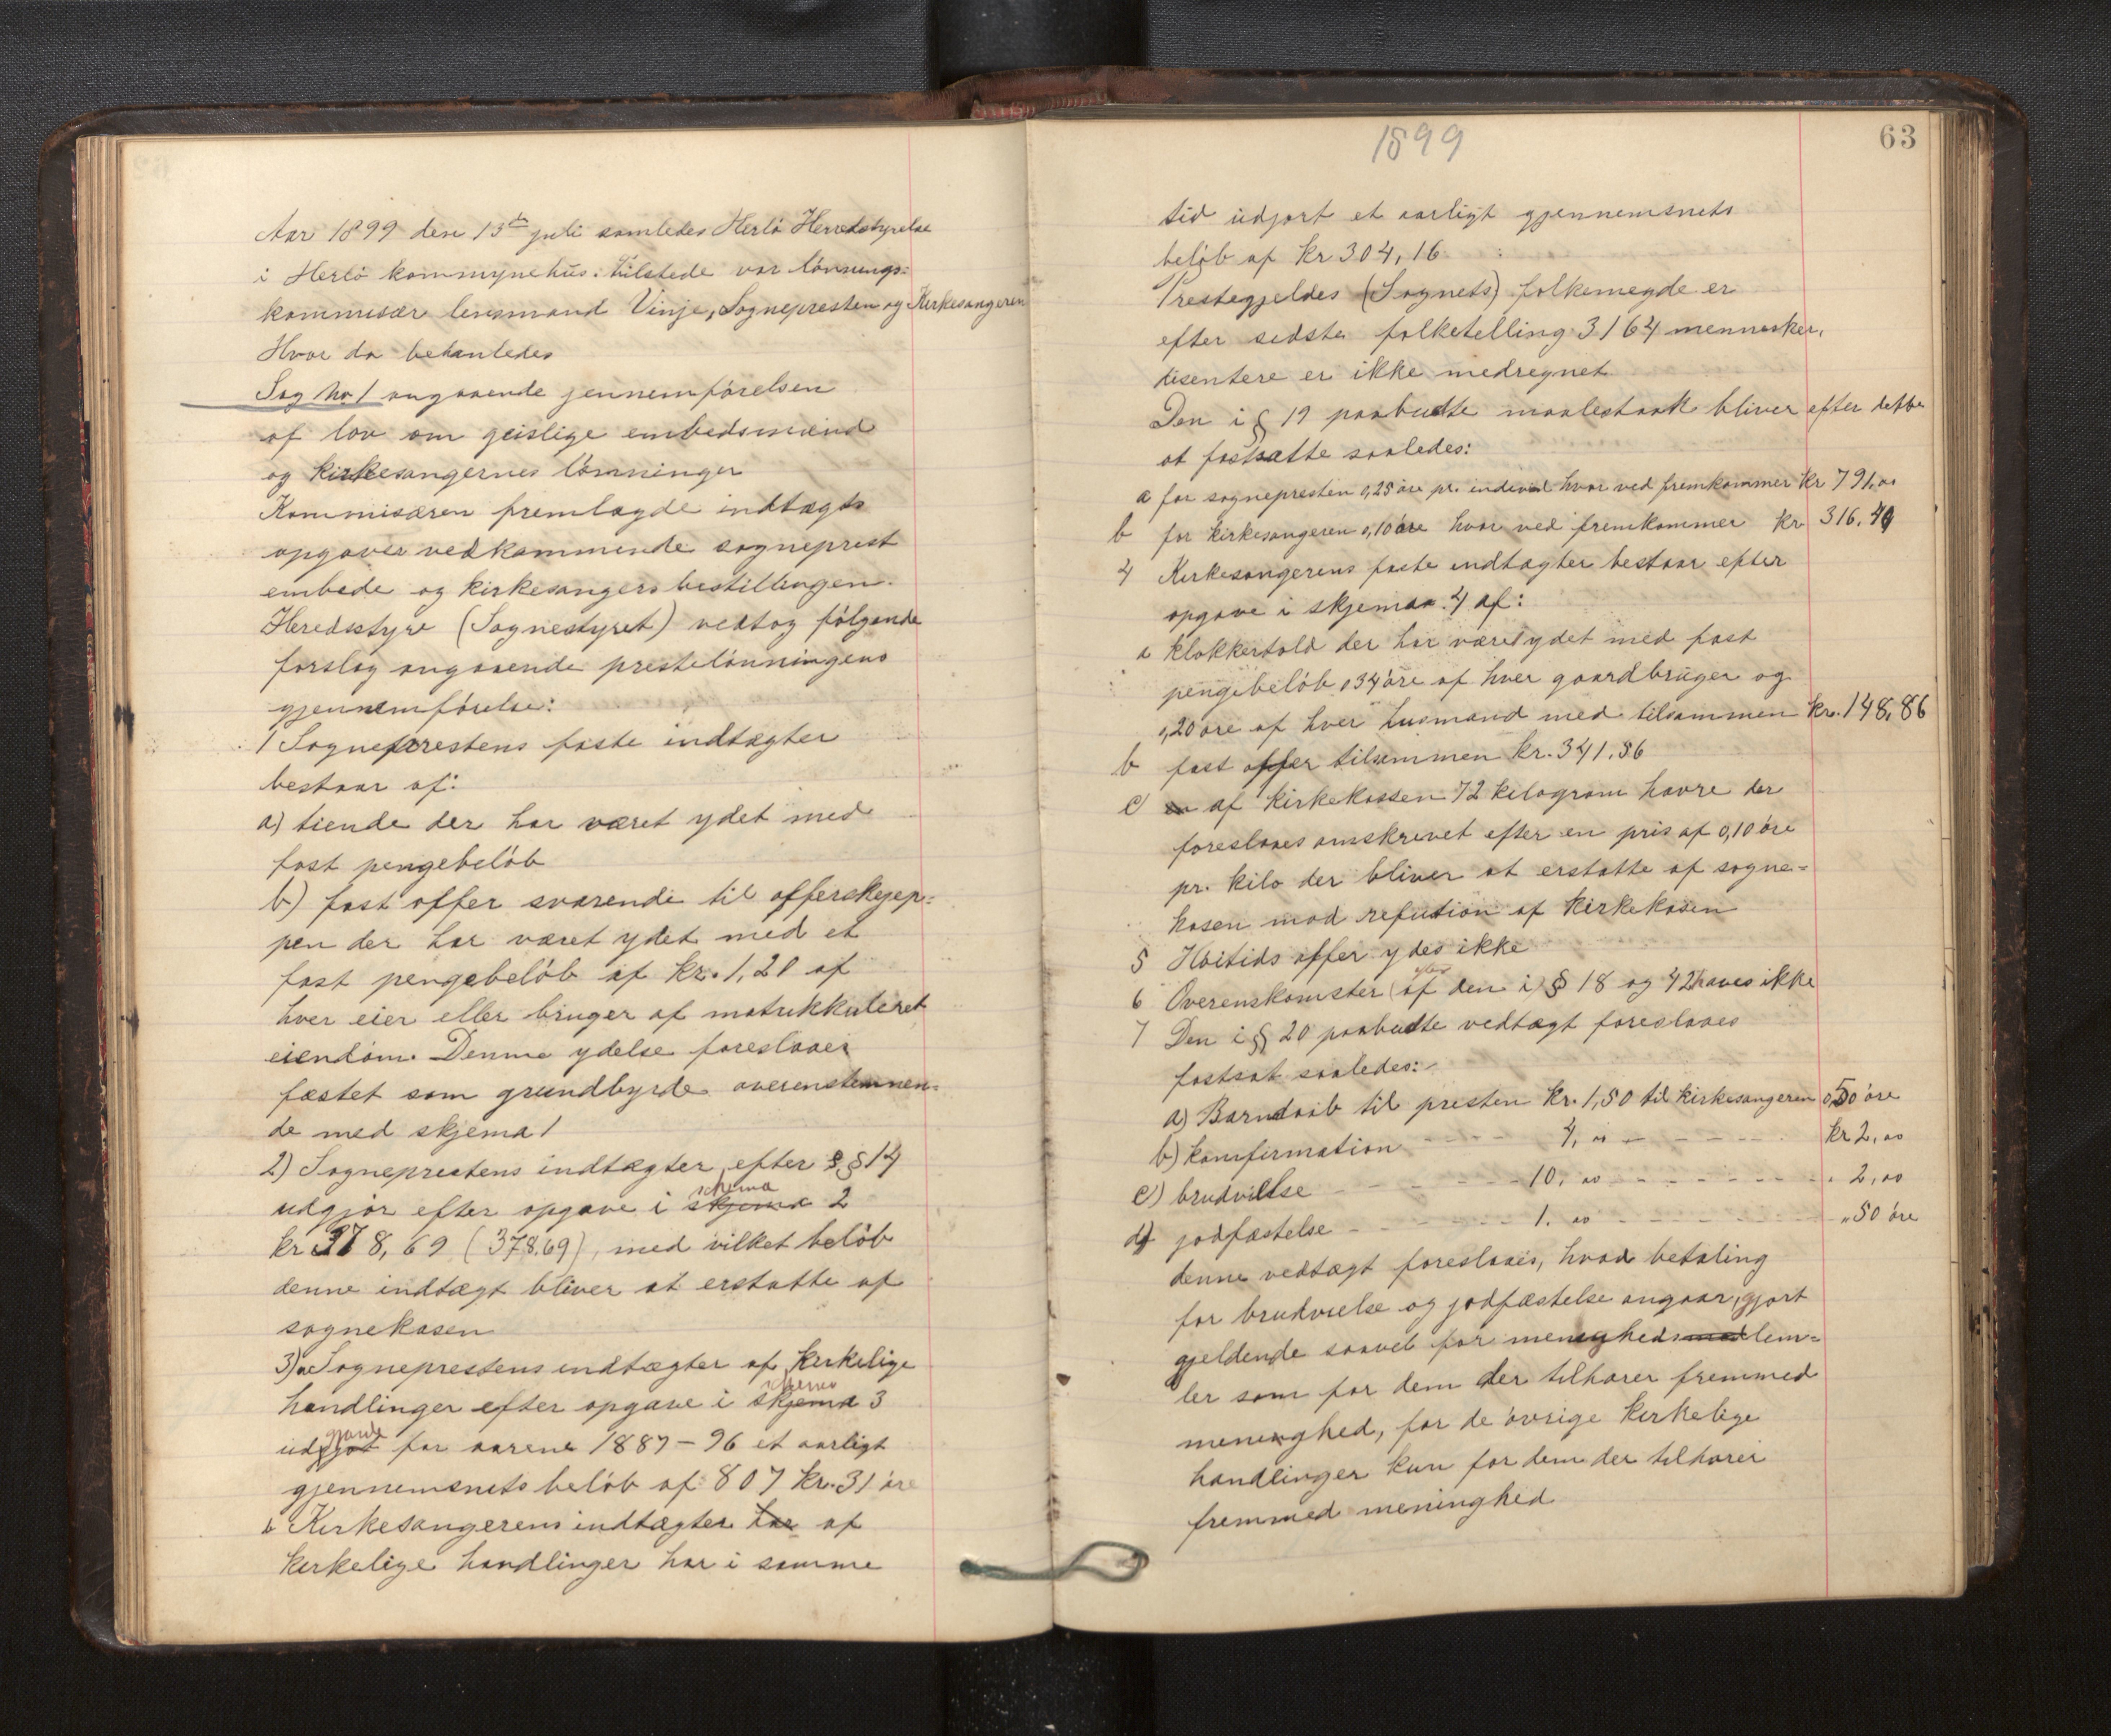 Aar 1899 den 13de juli samledes Herlö Herredstyrelse
i Herlö kommunehus. tilstede var lönnings-
kommisær lensmand Vinje, Sognepresten og Kirkesangeren
Hvor da behanledes
Sag No 1 angaaende jennemförelsen
af lov om geislige embedsmænd
og kirkesangernes lönninger
Kommisæren fremlagde indtægts
opgaver vedkommende sogneprest
embede og kirkesangers bestillingen.
Heredsstyre (Sognestyret) vedtog fölgende
forslag angaaende prestelönningens
gjennemförelse:
1 Sogneprestens faste indtægter
bestaar af:
a) tiende der har været ydet med
fast pengebelöb
b) fast offer svarende til offerskjep-
pen der har været ydet med et
fast pengebelöb af kr. 1,20 af
hver eier eller bruger af matrikkuleret
eiendom. Denne ydelse foreslaaes
fæstet som grundbyrde overenstemmen-
de med skjema 1
2) Sogneprestens indtægter efter § § 14
udgjör efter opgave i skjema schema 2
kr 378,69 (378,69), med vilket belöb
denne indtægt bliver at erstatte af
sognekasen
3) a Sogneprestens indtægter af kirkelige
handlinger efter opgave i skjema schema 3
udgjot gjorde for aarene 1887-96 et aarligt
gjennemsnets belöb af 807 kr. 31 öre
b Kirkesangerens indtægter har af
kirkelige handlinger har i samme
1899
63
tid udjort et aarligt gjennemsnets
belöb af kr 304,16
Prestegjeldes (Sognets) folkemegde er
efter sidste folketelling 3164 mennesker,
disentere er ikke medregnet
Den i § 19 paabudte maalestaak bliver efter dette
at fastsætte saaledes:
a for sognepresten 0,25 öre pr. individ hvor ved fremkommer kr 791,00
b for kirkesangeren 0,10 öre hvor ved fremkommer kr 316,40
4 Kirkesangerens faste indtægter bestaar efter
opgave i skjemaa 4 af:
a klokkertold der har været ydet med fast
pengebelöb 0,34 öre af hver gaardbruger og
0,20 öre af hver husmand med tilsammen kr. 148,86
b fast offer tilsammen kr. 341.56
c) en af kirkekassen 72 kilogram havre der
foreslaaes omskrevet efter en pris af 0,10 öre
pr. kilo der bliver at erstatte af sogne-
kasen mod refution af kirkekasen
5 Höitids offer ydes ikke
6 Overenskomster af den i § 18 og 42 haves ikke
7 Den i § 20 paabudte vedtægt foreslaaes
fastsat saaledes:
a) Barndaab til presten kr. 1,50 til kirkesangeren 0,50 öre
b) konfirmation - - - - - 4, 00 - - - - - - kr 2,00
c) brudvielse - - - - - - - 10, 00 - - - - - - - 2,00
d) jodfæstelse - - - - - - - 1. 00 - - - - - - - „50 öre
denne vedtægt foreslaaes, hvad betaling
for brudvielse og jodfæstelse angaar, gjort
gjeldende saavel for menighedsmedlem-
ler som for dem der tilhorer fremmed
meninghed, for de övrige kirkelige
handlinger kun for dem der tilhorer
fremmed meninghed